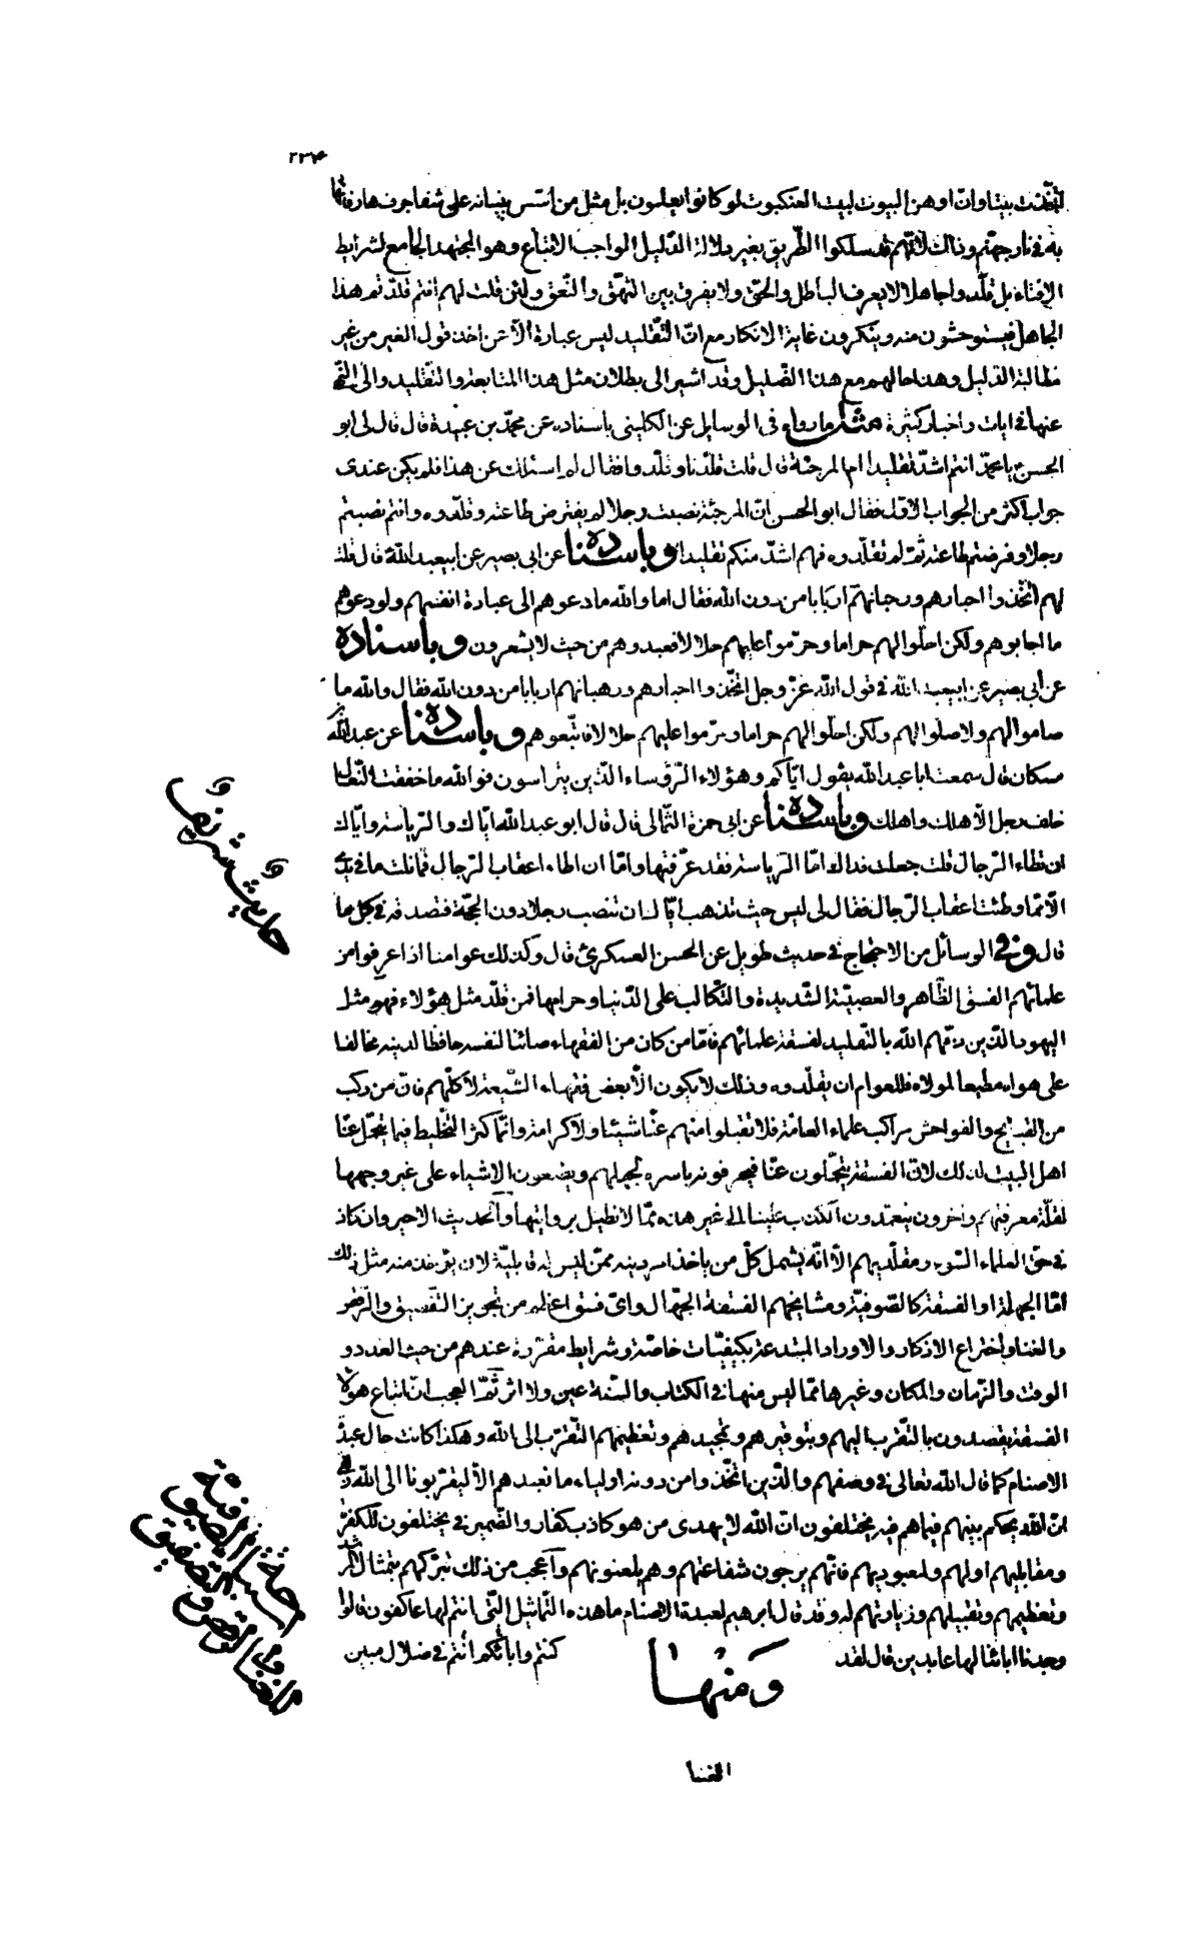 ٢٣٤
اتخذت بيتا وان اوهن البيوت لبيت العنكبوت لو كانوا يعلمون بل مثل من اسس بنيانه على شفا جرف هار فانها
به فى نار جهنم وذلك لانهم قد سلكوا الطريق بغير دلالة الدليل الواجب الاتباع وهو المجتهد الجامع لشرايط
الافتاء بل قلدوا جاهلا لا يعرف الباطل والحق ولا يفرق بين التهق والنعق ولئن قلت لهم انتم قلدتم هذا
الجاهل فيستوحشون منه وينكرون غاية الانكار مع ان التقليد ليس عبارة الا عن اخذ قول الغير من غير
مطالبة الدليل وهذا حالهم مع هذا الضليل وقد اشير الى بطلان مثل هذا المتابعة والتقليد والى النهى
عنها فى ايات واخبار كثيرة مثل ما رواه فى الوسايل عن الكلينى باسناده عن محمد بن عبيدة قال قال لى ابو
الحسن يا محمد انتم اشد تقليدا ام المرجئة قال قلت قلدنا وقلدوا فقال لم اسئلك عن هذا فلم يكن عندى
جواب اكثر من الجواب الاول فقال ابو الحسن ان المرجئة نصبت رجلا لم يفترض طاعته وقلدوه وانتم نصبتم
رجلا وفرضتم طاعته ثم لم تقلدوه فهم اشد منكم تقليدا وباسناده عن ابى بصير عن ابيعبد الله قال قلت
لهم اتخذوا احبارهم ورهبانهم اربابا من دون الله فقال اما والله ما دعوهم الى عبادة انفسهم ولو دعوهم
ما اجابوهم ولكن احلوا لهم حراما وحرموا عليهم حلالا فعبدوهم من حيث لا يشعرون وباسناده
عن ابى بصير عن ابيعبد الله فى قول الله عز وجل اتخذوا احبارهم ورهبانهم اربابا من دون الله فقال والله ما
صاموا لهم ولا صلوا لهم ولكن احلوا لهم حراما وحرموا عليهم حلالا فاتبعوهم وباسناده عن عبد الله بن
مسكان قال سمعت ابا عبد الله يقول اياكم وهؤلاء الرؤساء الذين يتراسون فوالله ما خفقت النعال
خلف رجل الا هلك واهلك وباسناده عن ابى حمزة الثمالى قال قال ابو عبد الله اياك والرياسة واياك
ان تطاء الرجال قلت جعلت فداك اما الرياسة فقد عرفتها واما ان اطاء اعقاب الرجال فما ثلث ما فى يدى
الا مما وطئت اعقاب الرجال فقال لى ليس حيث تذهب اياك ان تنصب رجلا دون الحجة فتصدقه فى كل ما
قال وفى الوسائل من الاحتجاج فى حديث طويل عن الحسن العسكرى قال وكذلك عوامنا اذا عرفوا من
علمائهم الفسق الظاهر والعصبية الشديدة والتكالب على الدنيا وحرامها فمن قلد مثل هؤلاء فهو مثل
اليهود الذين ذمهم الله بالتقليد لفسقة علمائهم فاما من كان من الفقهاء صائنا لنفسه حافظا لدينه مخالفا
على هواه مطيعا لمولاه فللعوام ان يقلدوه وذلك لا يكون الا بعض فقهاء الشيعة لا كلهم فان من ركب
من القبايح والفواحش مراكب علماء العامة فلا تقبلوا منهم عنا شيئا ولا كرامة وانما كثر التخليط فيما يتحمل عنا
اهل البيت لذلك لان الفسقة يتحملون عنا فيحرفونه باسره لجهلهم ويضعون الاشياء على غير وجهها
لقلة معرفتهم وآخرون يتعمدون الكذب علينا الى غير هذه مما لا نطيل بروايتها والحديث الاخير وان كان
فى حق العلماء السوء ومقلديهم الا انه يشمل كل من ياخذ امر دينه ممن ليس له قابلية لان يؤخذ منه مثل ذلك
اما الجهلة او الفسقة كالصوفية ومشايخهم الفسقة الجهال واى فسق اعظم من تجويز التصفيق والرقص
والغنا واختراع الاذكار والاوراد المبتدعة بكيفيات خاصة وشرايط مقررة عندهم من حيث العدد و
الوقت والزمان والمكان وغيرها مما ليس منها فى الكتاب والسنة عين ولا اثر ثم العجب ان اتباع هؤلاء
الفسقة يقصدون بالتقرب اليهم وبتوقيرهم وتمجيدهم وتعظيمهم التقرب الى الله وهكذا كانت حال عبدة
الاصنام كما قال الله تعالى فى وصفهم والذين اتخذوا من دونه اولياء ما نعبدهم الا ليقربونا الى الله زلفى
ان الله يحكم بينهم فيما هم فيه يختلفون ان الله لا يهدى من هو كاذب كفار والضمير فى يختلفون للكفرة
ومقابليهم او لهم ولمعبوديهم فانهم يرجون شفاعتهم وهم يلعنونهم واعجب من ذلك تبركهم بتمثال المرشد
وتعظيمهم وتقبيلهم وزيارتهم له وقد قال ابرهيم لعبدة الاصنام ما هذه التماثيل التى انتم لها عاكفون قالوا
وجدنا اباءنا لها عابدين قال لقد كنتم وابائكم انتم فى ضلال مبين
ومنها
الغنا
حديث شريف